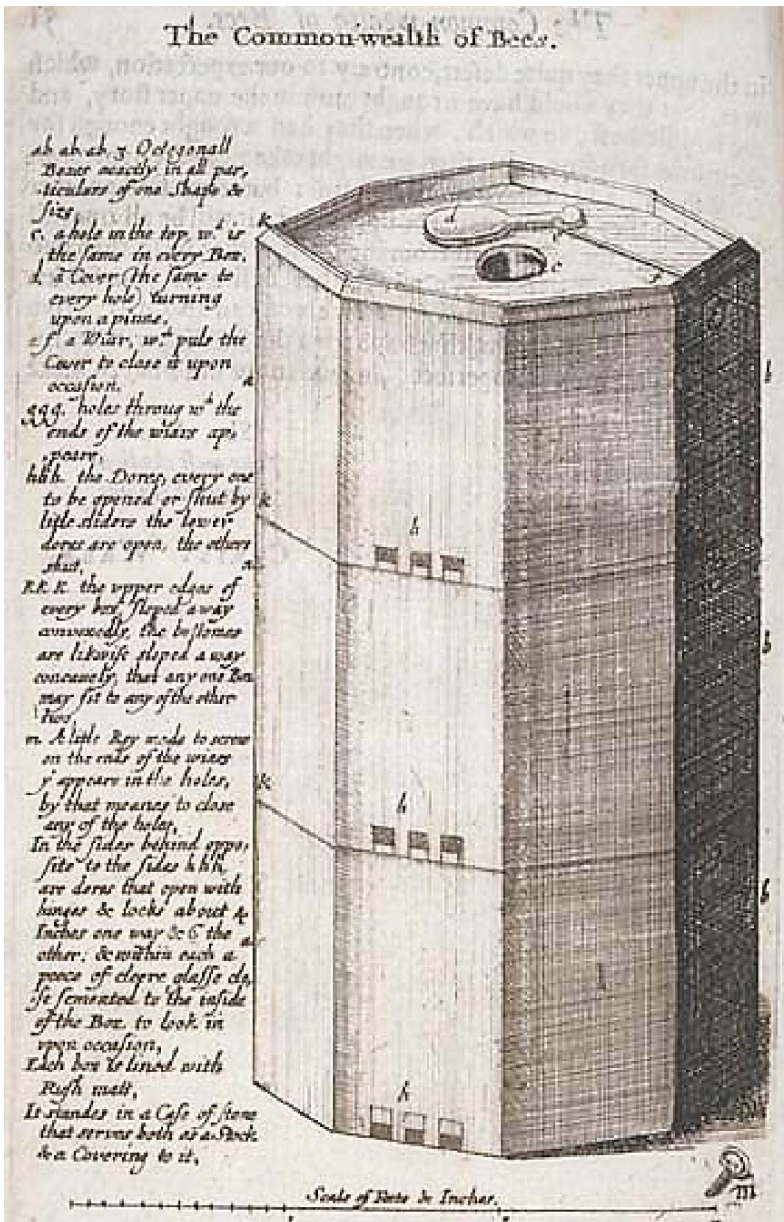 The Common-wealth of Bees.
ab. ab. ab. 3 Octogonall
Boxes exactly in all par,
ticulers of one Shape &
size
c. a hole in the top, wch is
the same in every Box.
d. a Cover (the same to
every hole) turning
upon a pinne.
e f. a Wiar, wch puls the
Cover to close it upon
occasion.
ggg. holes throug wch the
ends of the wiars ap,
peare,
hhh. the Dores, every one
to be opened or shut by
little sliders the lower
dores are open, the others
shut,
K K K the upper edges of
every box sloped away
convexedly, the bottomes
are likwise sloped away
concavely, that any one Box
may fit to any of the other
two
m. A little Key made to screw
on the ends of the wiars
yt appeare in the holes,
by that meanes to close
any of the holes,
In the sides behind oppo,
site to the sides hhh
are dores that open with
hinges & locks about 4
Inches one way & 6 the
other: & within each a
peece of cleere glasse clo,
se semented to the inside
of the Box to look in
upon occasion,
Each box is lined with
Rush matt,
It standes in a Case of stone
that serves both as a Stock
& a Covering to it,
d
e
c
f
k
a
b
h
k
a
b
h
k
a
b
h
l
m
Scale of Feete & Inches.